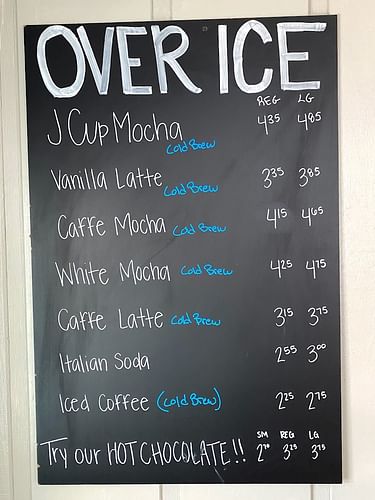 OVER ICE
REG LG
J Cup Mocha 4.35 4.85
Cold Brew
Vanilla Latte Cold Brew 3.35 3.85
Caffe Mocha Cold Brew 4.15 4.65
White Mocha Cold Brew 4.25 4.75
Caffe Latte Cold Brew 3.15 3.75
Italian Soda 2.55 3.00
Iced Coffee (Cold Brew) 2.25 2.75
SM REG LG
Try our HOT CHOCOLATE!! 3.25 3.75